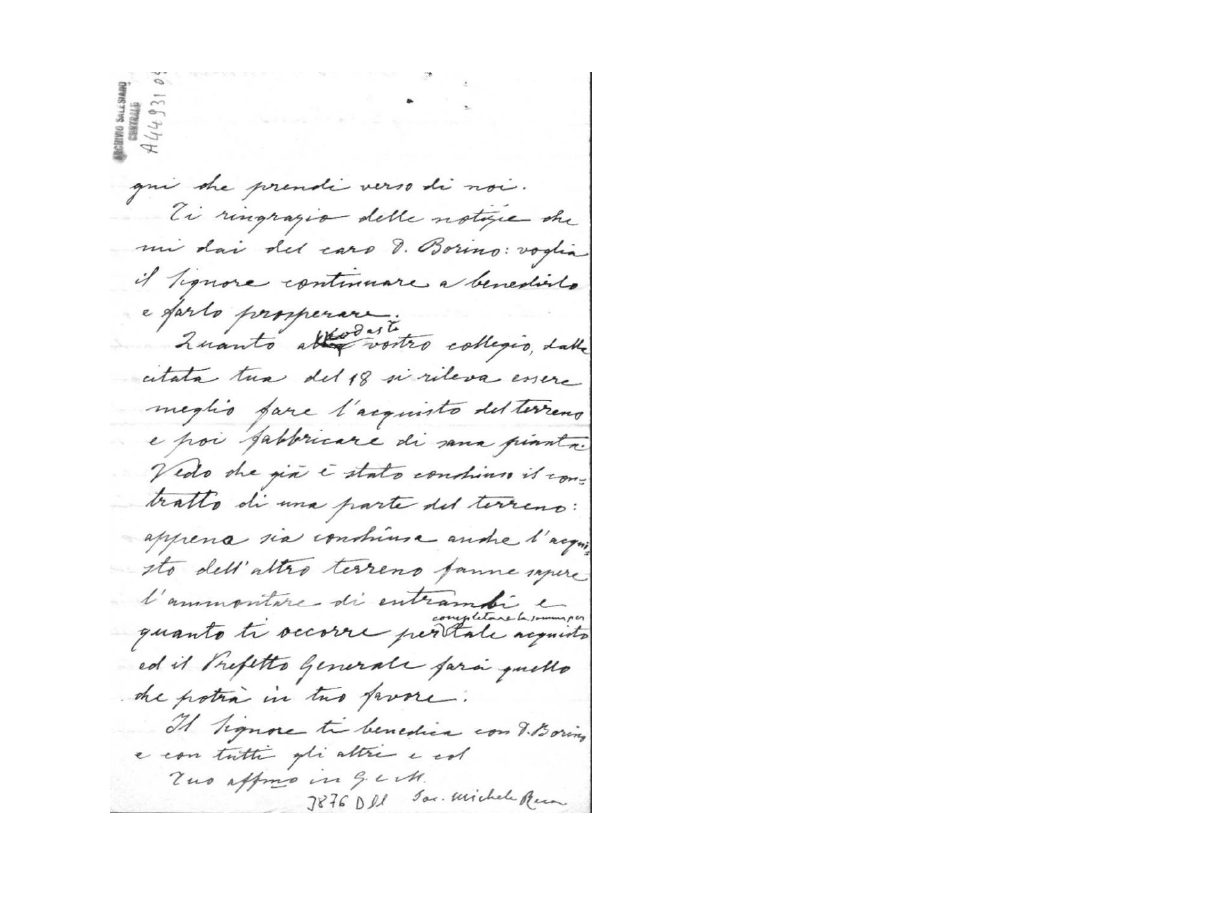 ARCHIVIO SALESIANO
CENTRALE
A44931
gni che prendi verso di noi.
Ti ringrazio delle notizie che
mi dai del caro D. Borino: voglia
il Signore continuare a benedirlo
e farlo prosperare.
Quanto al vostro collegio, dalla
citata tua del 18 si rileva essere
meglio fare l'acquisto del terreno
e poi fabbricare di sana pianta.
Vedo che già è stato conchiuso il con=
tratto di una parte del terreno:
appena sia conchiusa anche l'acqui=
sto dell'altro terreno fanne sapere
l'ammontare di entrambi e
completare la somma per
quanto ti occorre per tale acquisto
ed il Prefetto Generale farà quello
che potrà in tuo favore.
Il Signore ti benedica con D. Borino
e con tutti gli altri e col
Tuo affmo in G. e M.
Sac. Michele Rua
3876